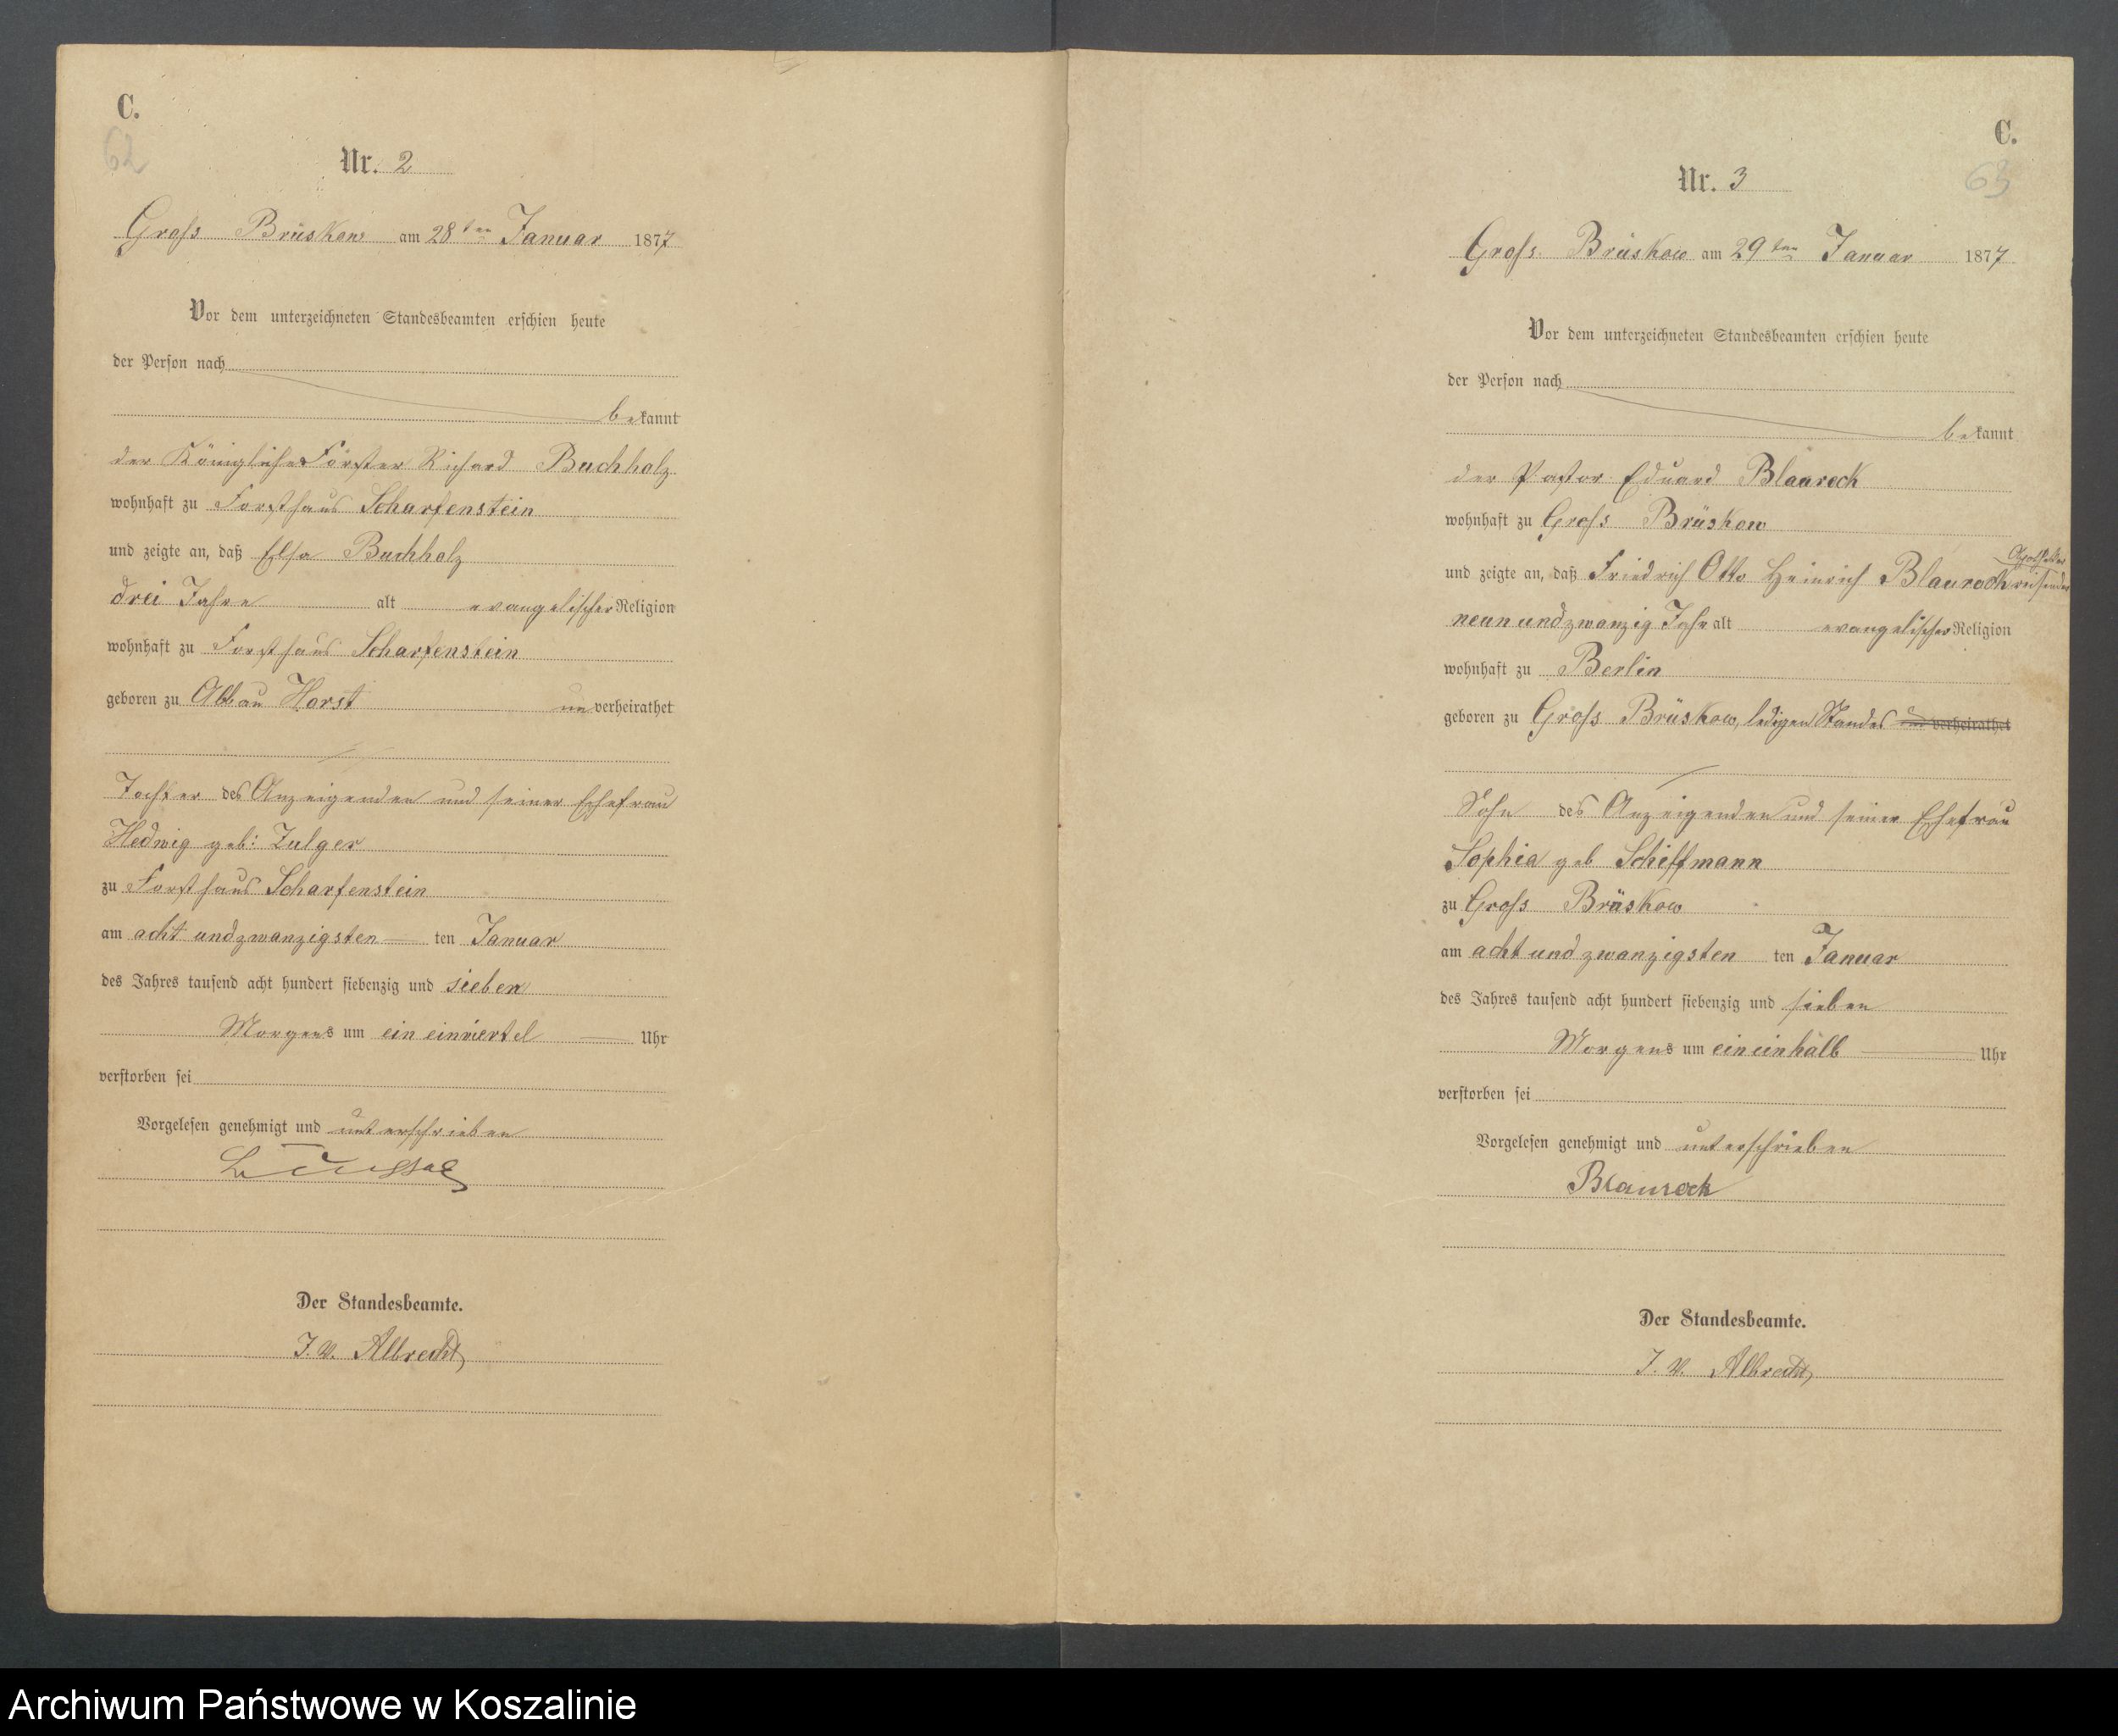 C.
62
Nr. 2
Gross Brüskow am 28ten Januar 1877
Vor dem unterzeichneten Standesbeamten erschien heute
der Person nach
bekannt
der Königliche Förster Richard Buchholz
wohnhaft zu Forsthaus Scharfenstein
und zeigte an, daß Elsa Buchholz
drei Jahre alt evangelischer Religion
wohnhaft zu Forsthaus Scharfenstein
geboren zu Abbau Horst unverheirathet
Tochter des Anzeigenden und seiner Ehefrau
Hedwig geb: Zulger
zu Forsthaus Scharfenstein
am acht undzwanzigsten ten Januar
des Jahres tausend acht hundert siebenzig und sieben
Morgens um ein einviertel Uhr
verstorben sei
Vorgelesen genehmigt und unterschrieben
Der Standesbeamte.
J. V. Albrecht
C.
63
Nr. 3
Gross Brüskow am 29ten Januar 1877
Vor dem unterzeichneten Standesbeamten erschien heute
der Person nach
bekannt
der Pastor Eduard Blaurock
wohnhaft zu Gross Brüskow
Apotheker
und zeigte an, daß Friedrich Otto Heinrich Blaurock
neunundzwanzig Jahr alt evangelischer Religion
wohnhaft zu Berlin
geboren zu Gross Brüskow, ledigen Standes und verheirathet
Sohn des Anzeigenden und seiner Ehefrau
Sophia geb Schiffmann
zu Gross Brüskow
am acht und zwanzigsten ten Januar
des Jahres tausend acht hundert siebenzig und sieben
Morgens um ein einhalb Uhr
verstorben sei
Vorgelesen genehmigt und unterschrieben
Blaurock
Der Standesbeamte.
J. V. Albrecht
Archiwum Państwowe w Koszalinie